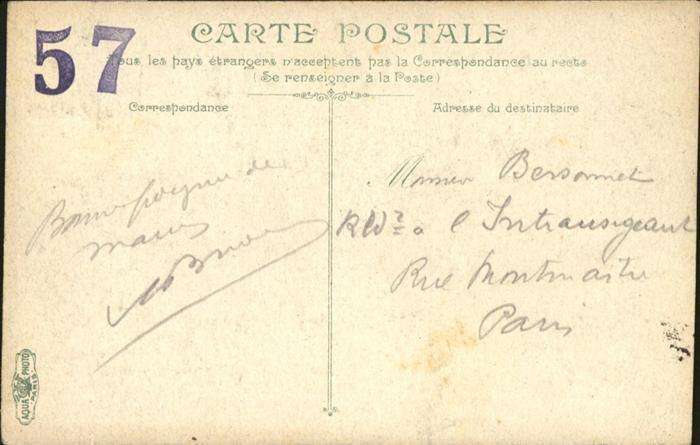 57
CARTE POSTALE
Tous les pays étrangers n'acceptent pas la Correspondance au recto
(Se renseigner à la Poste)
Correspondance
Adresse du destinataire
Bonne poignée de
mains
Monsieur Bersonnet
à l'Intransigeant
Rue Montmartre
Paris
AQUA PHOTO
PARIS